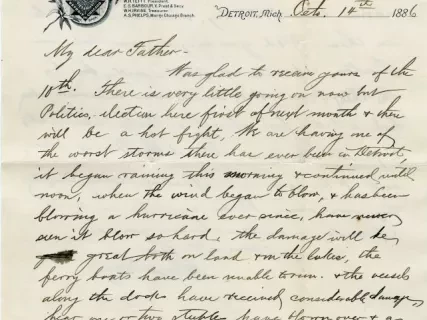 W.H. TEFFT President
C.S. BARBOUR, V. Prest & Secy
W.H. WAKE Treasurer
A.S. PHELPS, Mangr Chicago Branch.
DETROIT, Mich Oct. 14th 1886
My dear Father-
Was glad to receive yours of the
10th. There is very little going on now but
Politics, election here first of next month & there
will be a hot fight, We are having one of
the worst storms there has ever been in Detroit,
it began raining this morning & continued until
noon, when the wind began to blow, & has been
blowing a hurricane ever since, have never
seen it blow so hard, the damage will be
great both on land & on the lakes, the
ferry boats have been unable to run. & the vessels
along the docks have received considerable damage,
hear one or two stables have blown over & a